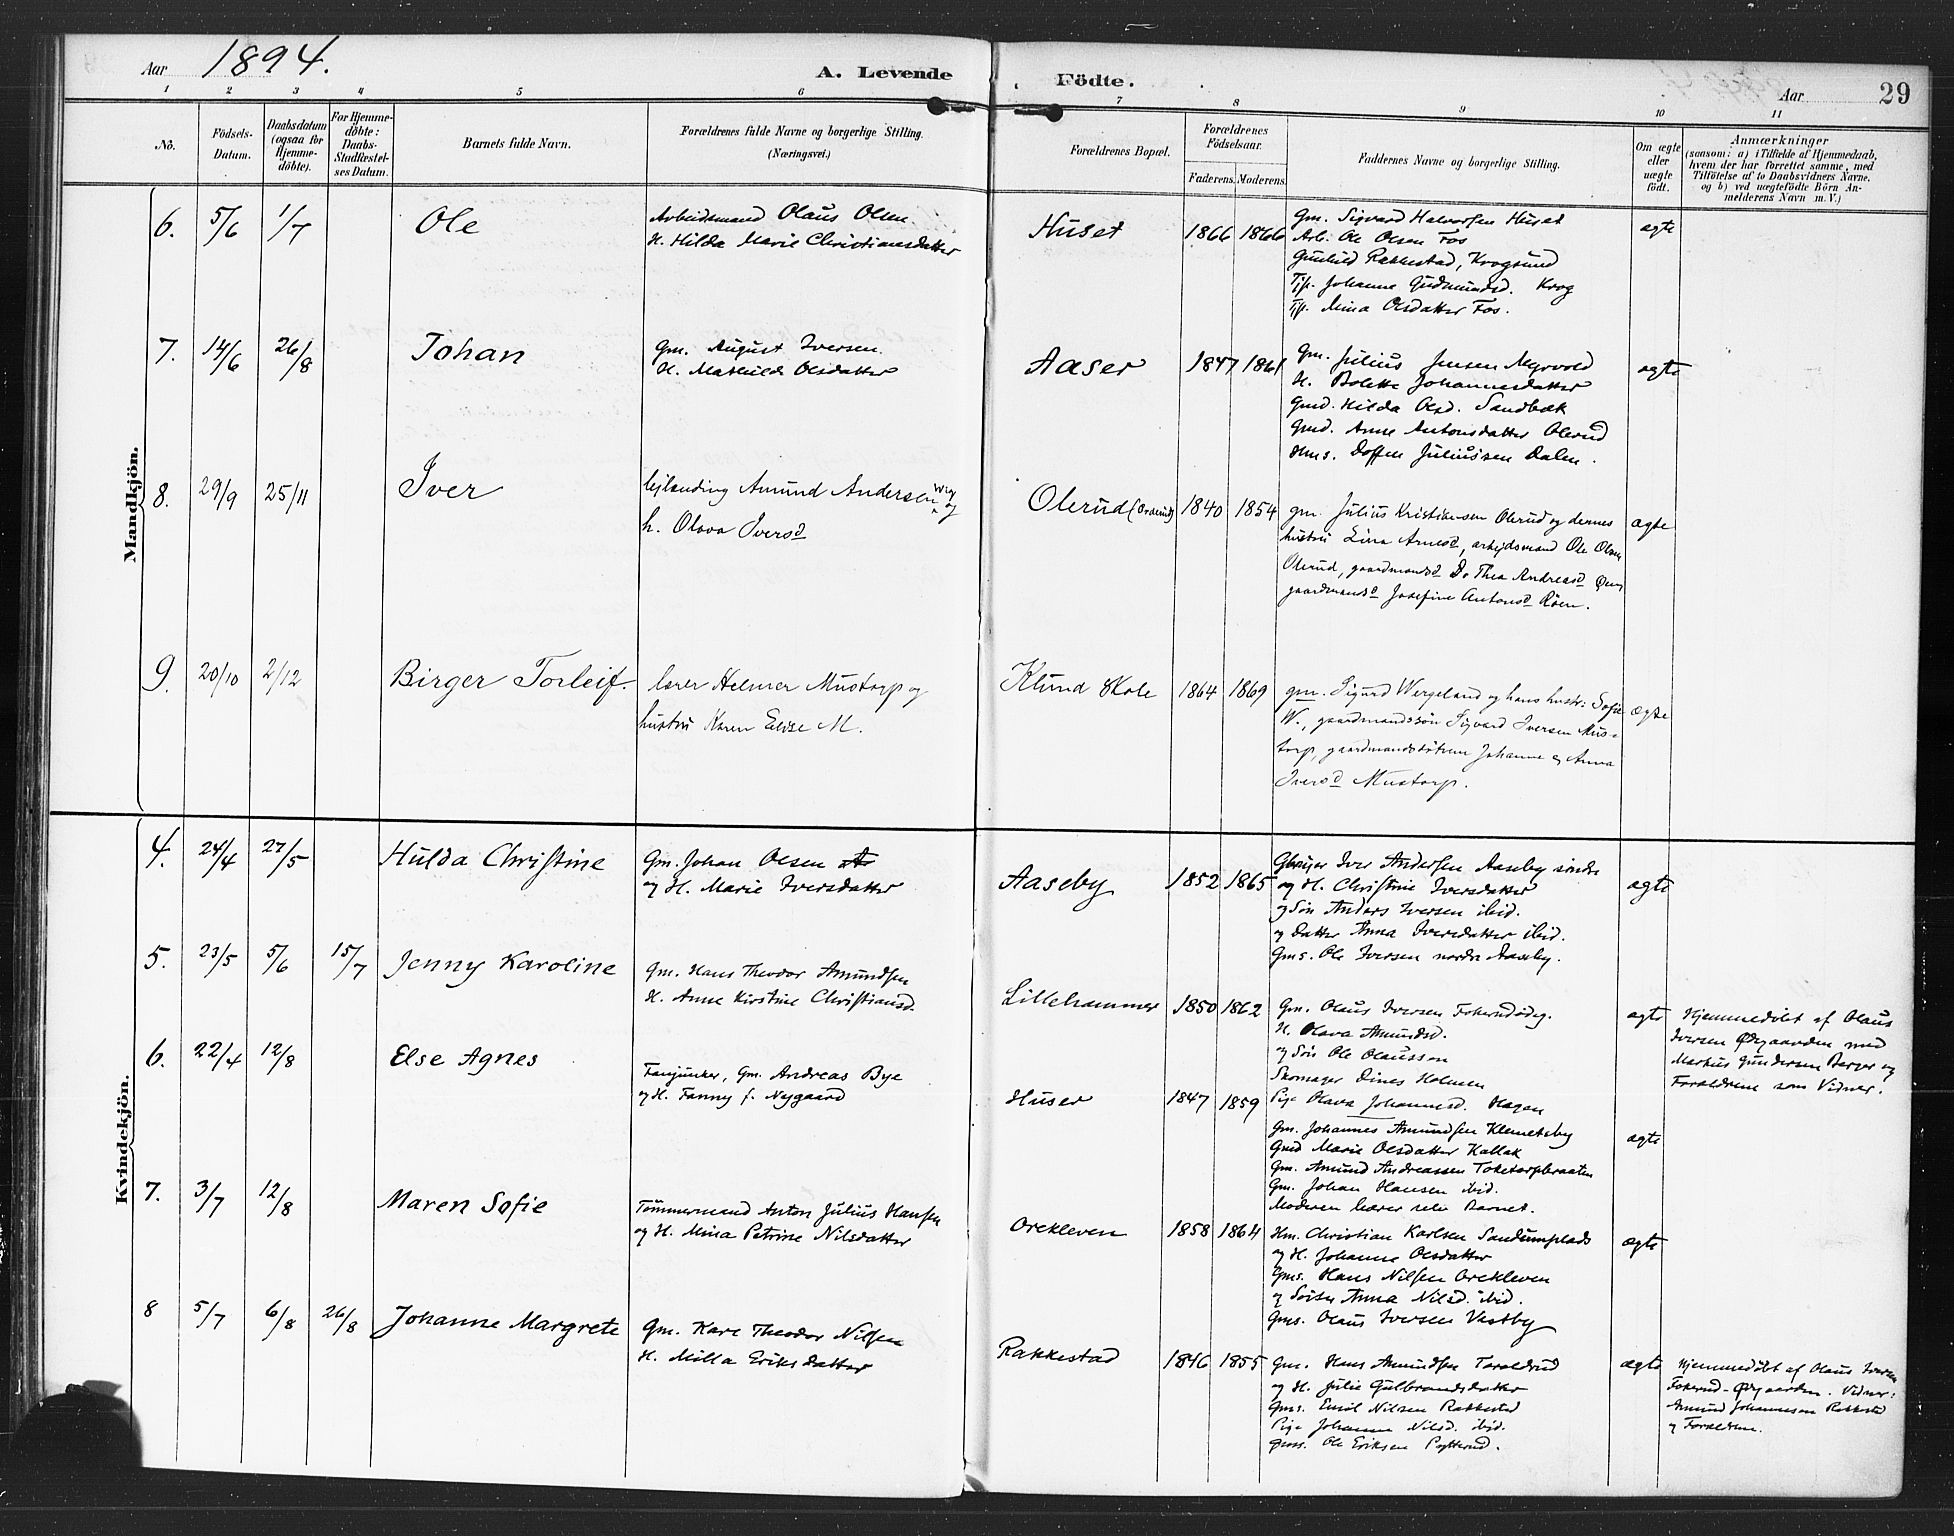 Aar 1894. A. Levende Födte. Aar 29
1 2 3 4 5 6 7 8 9 10 11
No.
Födsels-Datum.
Daabsdatum (ogsaa for Hjemme-döbte).
For Hjemme-döbte: Daabs-Stadfæstel-ses Datum.
Barnets fulde Navn.
Forældrenes fulde Navne og borgerlige Stilling.
(Næringsvei.)
Forældrenes Bopæl.
Forældrenes Födselsaar.
Faderens. Moderens.
Faddernes Navne og borgerlige Stilling.
Om ægte eller uægte födt.
Anmærkninger
(saasom: a) i Tilfælde af Hjemmedaab,
hvem der har forrettet samme, med
Tilföielse af to Daabsvidners Navne.
og b) ved uægtefödte Börn An-
melderens Navn m. V.)
Mandkjön.
6. 5/6 1/7 Ole
Arbeidsmand Olaus Olsen.
H. Hilda Marie Christiansdatter
Huset 1866 1866
Gm. Sigvard Halvorsen Huset
Arb. Ole Olsen Fos
Gunhild Rakkestad, Krogsund
Tjp. Johanne Gudmundsd. Krog
Tjp. Mina Olsdatter Fos.
ægte
7. 14/6 26/8 Johan
Gm. August Iversen.
H. Mathilde Olsdatter
Aaser 1847 1861
Gm. Julius Jensen Myrvold
H. Bolette Johannesdatter
Gmd. Hilda Olsd. Sandbæk
Gmd. Anne Antonsdatter Olerud
Hms. Doffen Juliussen Dalen.
ægte
8. 29/9 25/11 Iver
lejlænding Amund Andersen Wig og
h. Olava Iversd
Olerud 1840 1854
gm. Julius Kristiansen Olerud og dennes
hustru Lina Arnesd, arbejdsmand Ole Olsen
Olerud, gaardmandsd Do Thea Andreasd
gaardmandsd Josefine Antonsd Röen.
ægte
9. 20/10 2/12 Birger Torleif.
lærer Helmer Mustorp og
hustru Karen Elise M.
Klund Skole 1864 1869
gm. Sigurd Wergeland og hans hustr: Sofie
W., gaardmandssön Sigvard Iversen Mus-
torp, gaardmandsdötrene Johanne og Anna
Iversd Mustorp.
ægte
Kvindekjön.
4. 24/4 27/5 Hulda Christine
Gm. Johan Olsen
og H. Marie Iversdatter
Aaseby 1852 1865
Gbruger Iver Andersen Aaseby söndre
og H. Christine Iversdatter
og Sön Anders Iversen ibid.
og Datter Anna Iversdatter ibid.
Gms. Ole Iversen nordre Aaseby.
ægte
5. 23/5 5/6 15/7 Jenny Karoline
Gm. Hans Theodor Amundsen
H. Anne Kirstine Christiansd.
Lillehammer 1850 1862
Gm. Olaus Iversen Fokerudödeg.
H. Olava Amundsd.
og Sön Ole Olaussen
Skomager Dines Holmsen
Pige Olava Johannesd. Hagen
ægte
Hjemmedöbt af Olaus
Iversen Ödegaarden med
Markus Gundersen Berger og
Forældrene som Vidner.
6. 22/4 12/8 Else Agnes
Fanejunker, Gm. Andreas Bye
og H. Fanny f. Nygaard
Huser 1847 1859
Gm. Johannes Amundsen Klemetsby
Gmd Marie Olsdatter Kallak
Gm. Amund Andreassen Toketorpbraaten
Gm. Johan Hansen ibid.
Moderen bærer selv Barnet.
ægte
7. 3/7 12/8 Maren Sofie
Tömmermand Anton Julius Hansen
og H. Mina Petrine Nilsdatter
Orekleven 1858 1864
Hm. Christian Karlsen Sandumplads
og H. Johanne Olsdatter
Gms. Hans Nilsen Orekleven
og Söster Anna Nilsd. ibid.
Gms. Olaus Iversen Vestby
ægte
8 5/7 6/8 26/8 Johanne Margrete
Gm. Karl Theodor Nilsen
H. Milla Eriksdatter
Rakkestad 1846 1855
Gm. Hans Amundsen Taraldrud
og H. Julie Gulbrandsdatter
Gms. Emil Nilsen Rakkestad
Pige Johanne Nilsd. ibid.
Gms. Ole Eriksen
ægte
Hjemmedöbt af Olaus Iversen
Fokerud-Ödegaarden. Vidner:
Amund Johannessen Rakkestad
og Forældrene.